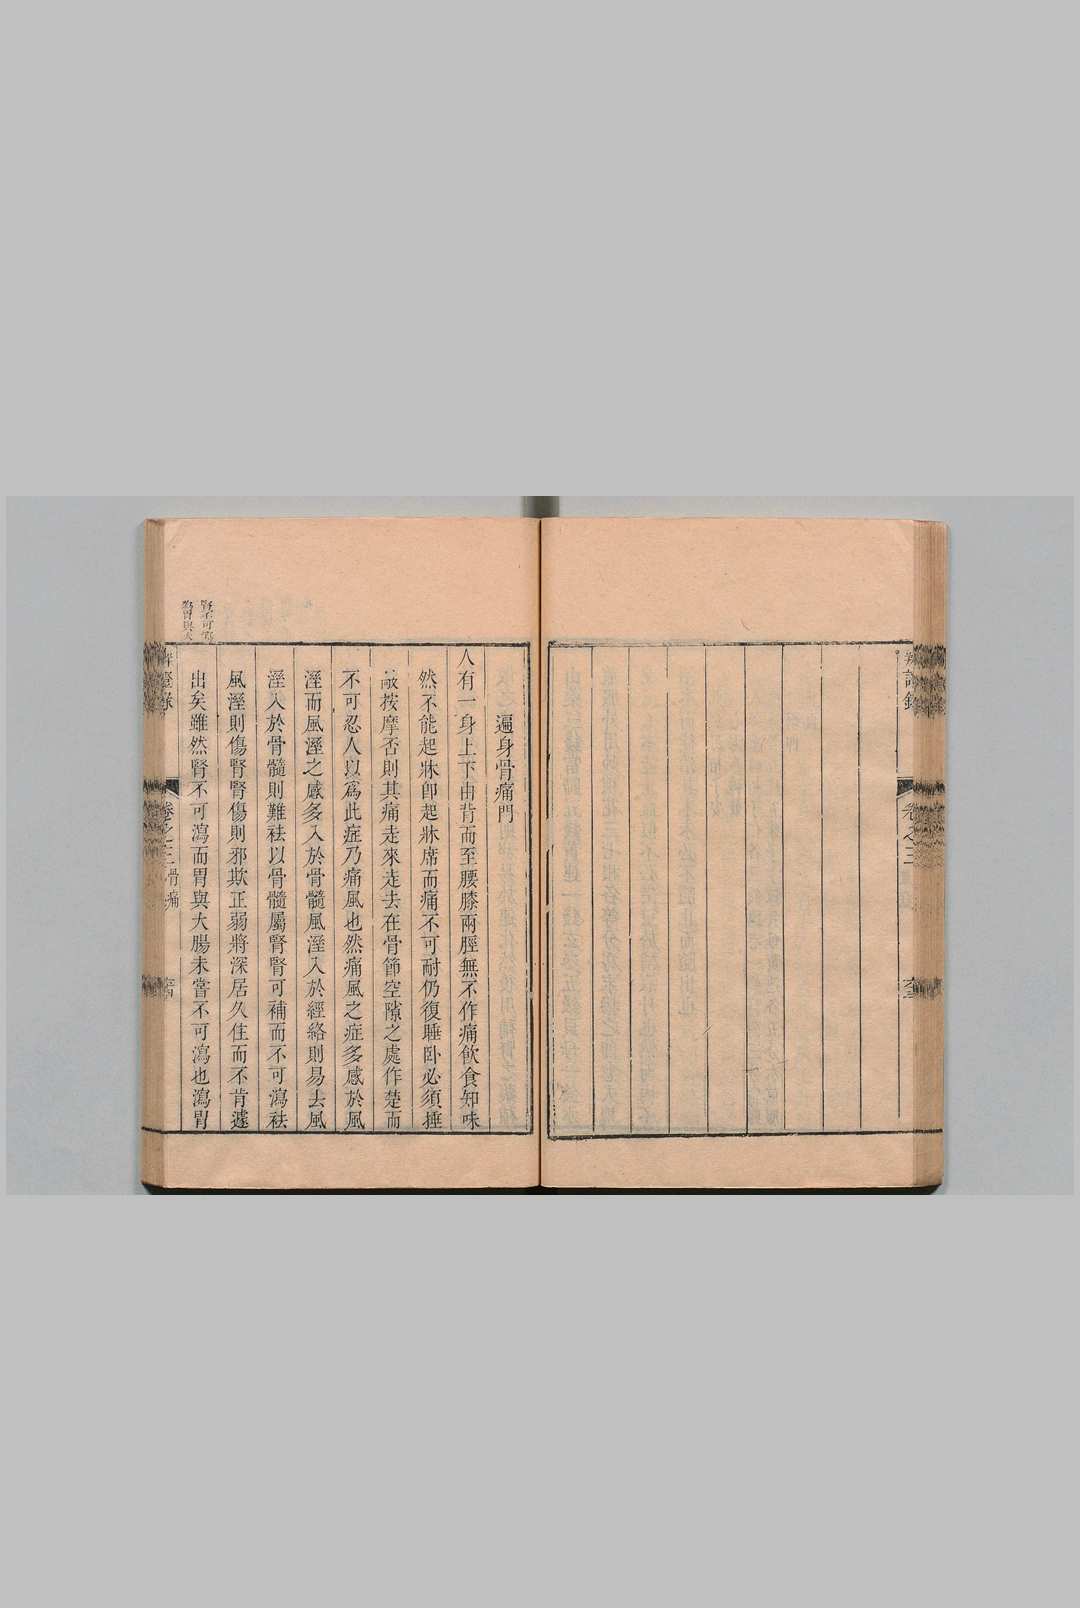 卷之三
遍身骨痛門
人有一身上下由背而至腰膝兩脛無不作痛飲食知味
然不能起牀卽起牀席而痛不可耐仍復睡卧必須捶
敲按摩否則其痛走來走去在骨節空隙之處作楚而
不可忍人以爲此症乃痛風也然痛風之症多感於風
溼而風溼之感多入於骨髓風溼入於經絡則易去風
溼入於骨髓則難祛以骨髓屬腎腎可補而不可瀉祛
風溼則傷腎腎傷則邪欺正弱將深居久住而不肯遽
出矣雖然腎不可瀉而胃與大腸未嘗不可瀉也瀉胃
腎不可瀉
瀉胃與大
卷之三 骨痛